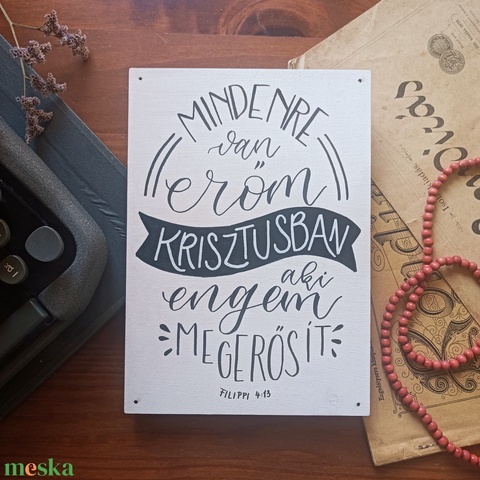 MINDENRE
van
erőm
KRISZTUSBAN
aki
engem
MEGERŐSÍT
FILIPPI 4:13
meska